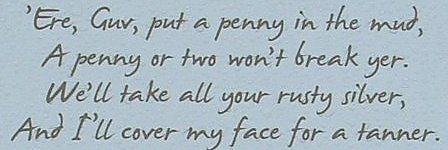 'Ere, Guv, put a penny in the mud,
A penny or two won't break yer.
We'll take all your rusty silver,
And I'll cover my face for a tanner.